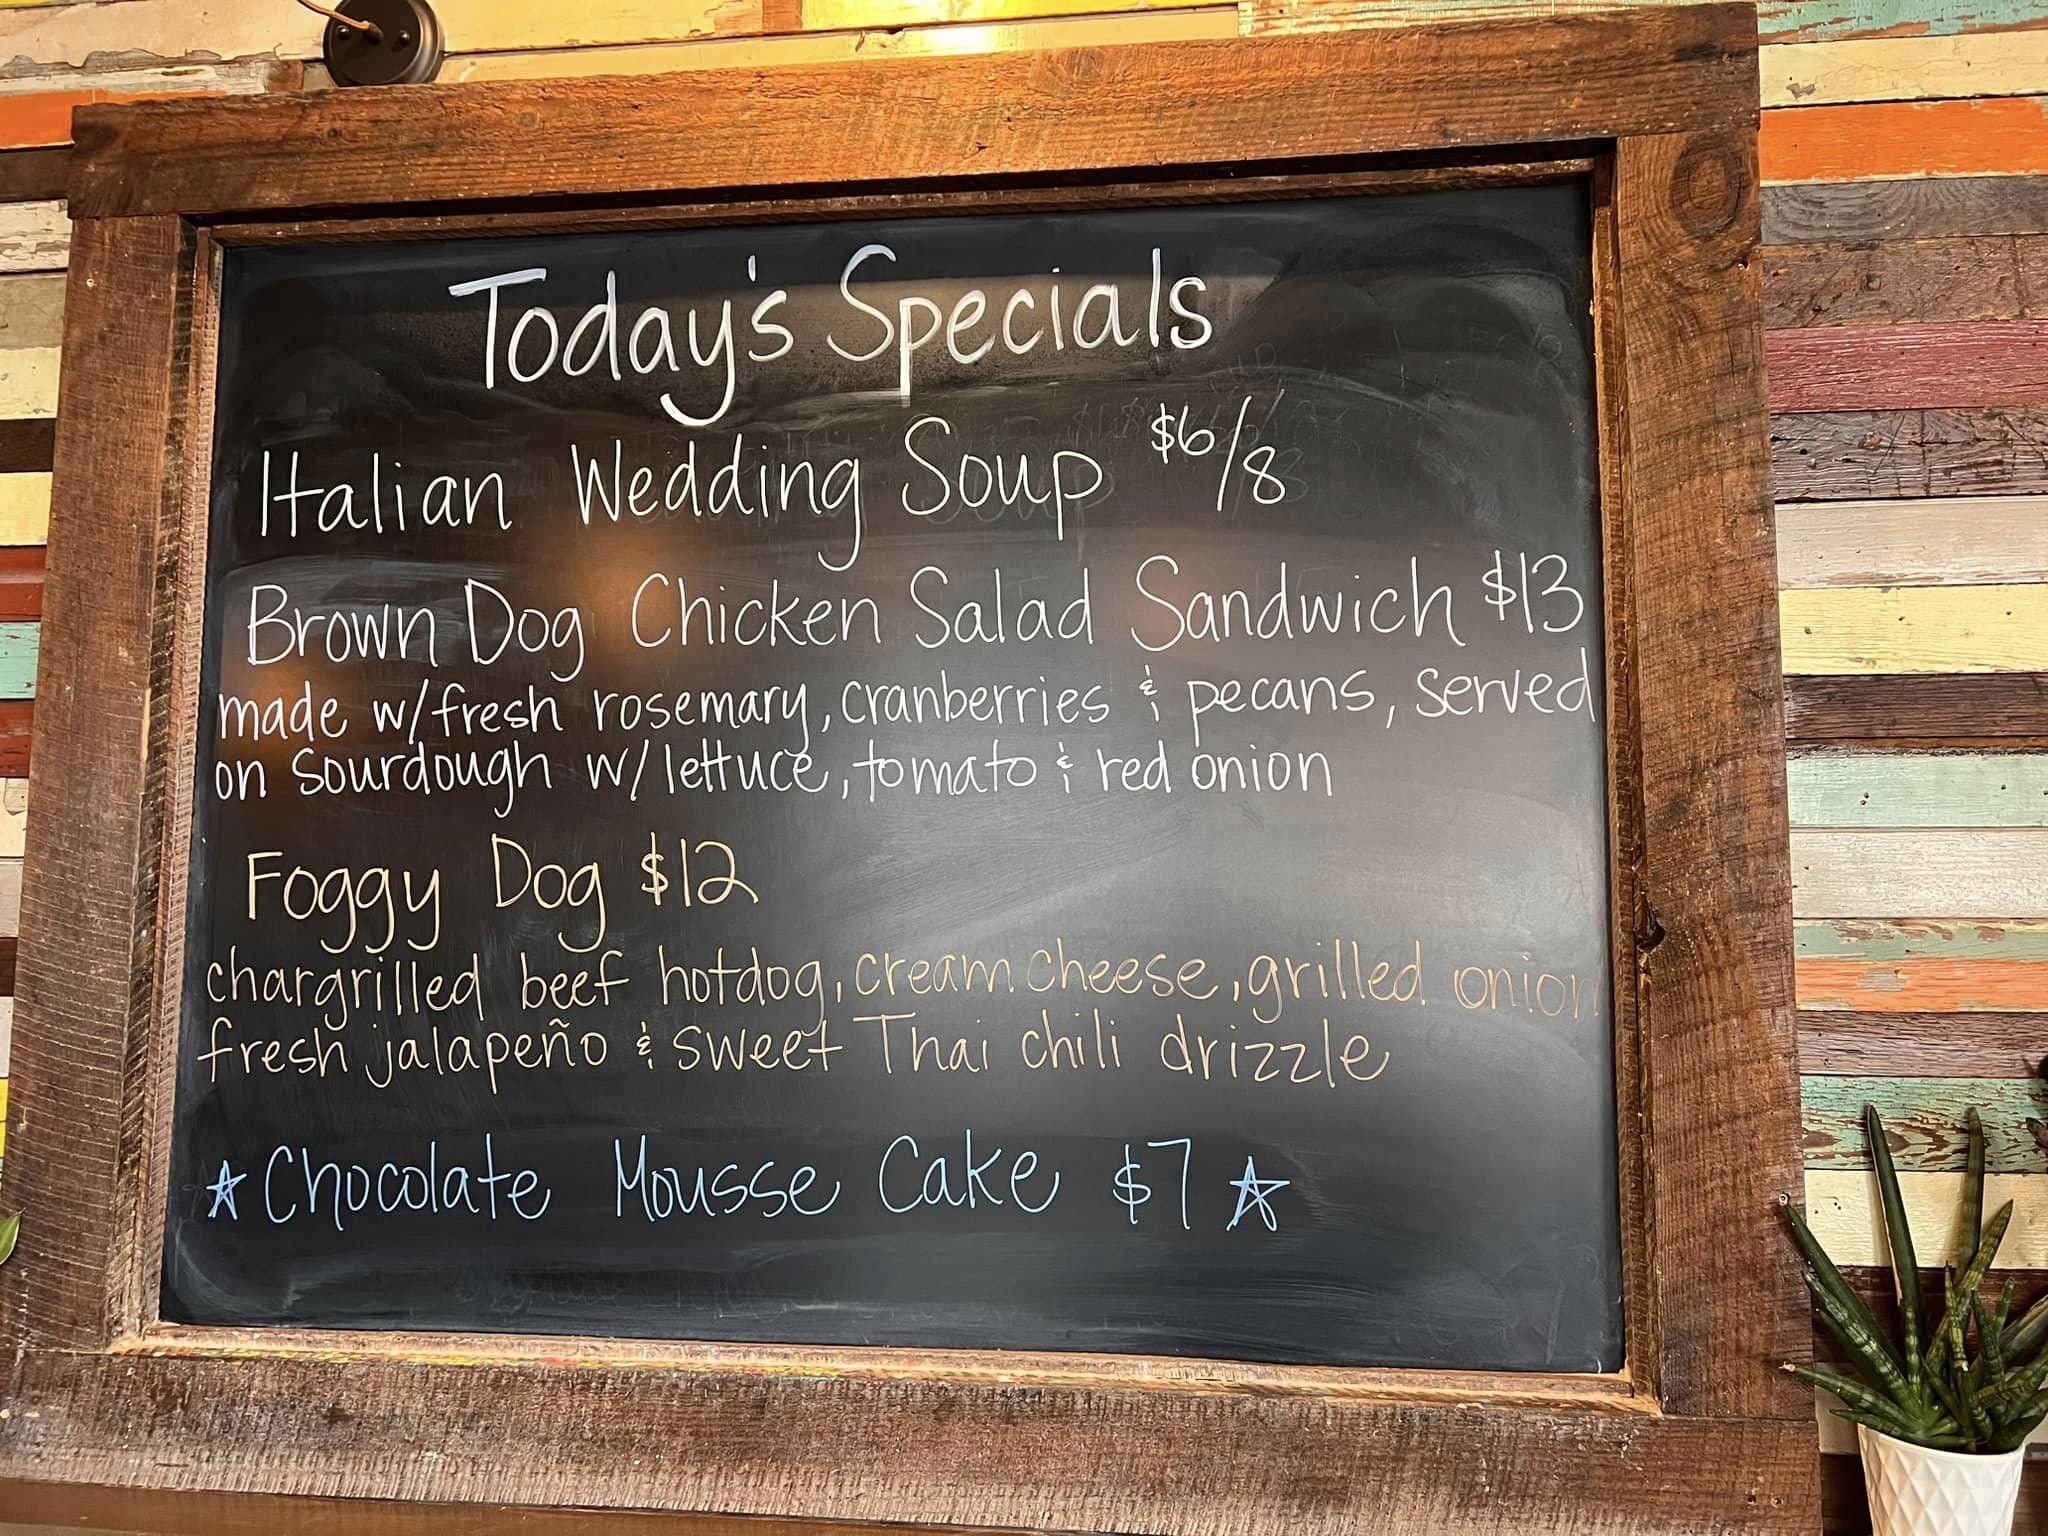 Today's Specials
Italian Wedding Soup $6/8
Brown Dog Chicken Salad Sandwich $13
made w/fresh rosemary, cranberries & pecans, served
on sourdough w/lettuce, tomato & red onion
Foggy Dog $12
chargrilled beef hotdog, cream cheese, grilled onion
fresh jalapeño & sweet Thai chili drizzle
☆ Chocolate Mousse Cake $7 ☆